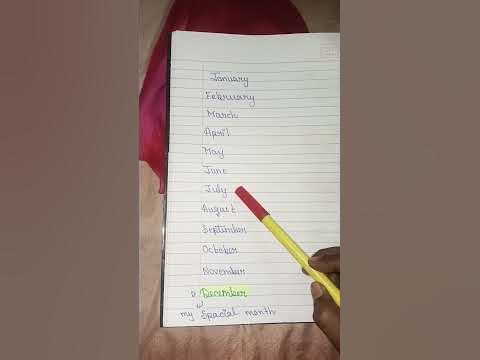 January
February
March
April
May
June
July
August
September
October
November
December
my Spacial month